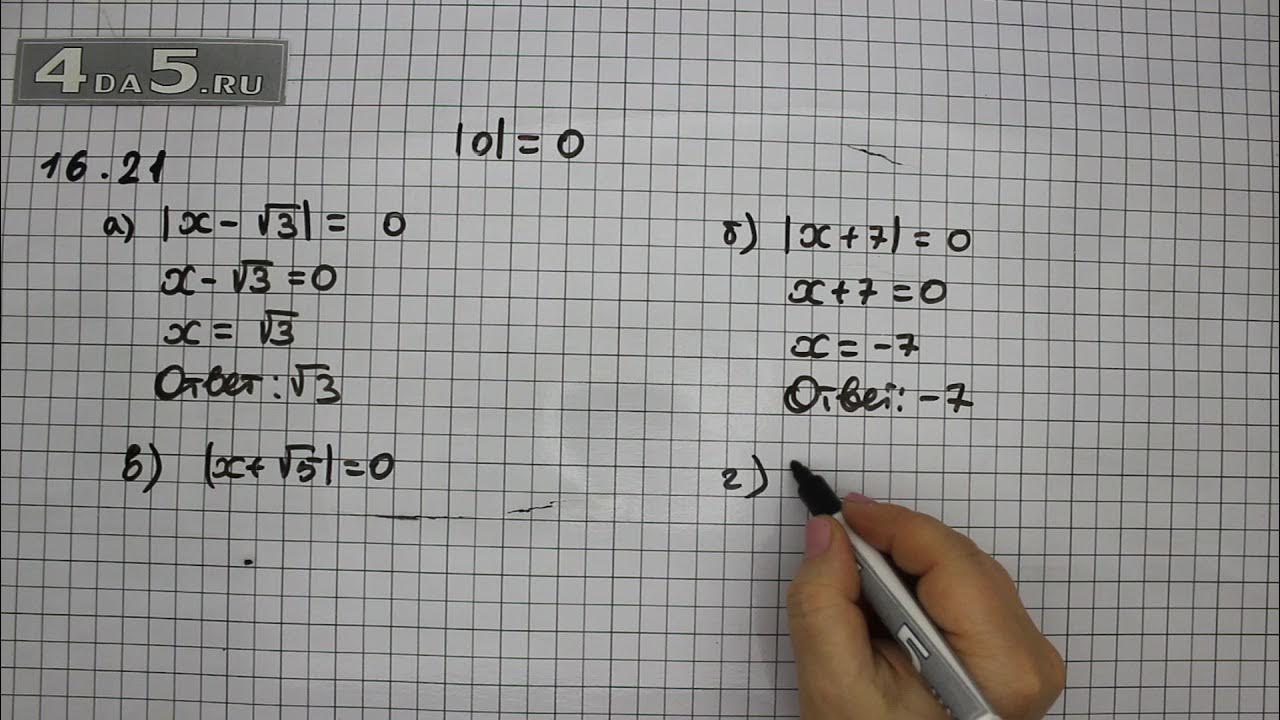 4DA5.RU
|0| = 0
16.21
а) |x - √3| = 0
x - √3 = 0
x = √3
Ответ: √3
б) |x + 7| = 0
x + 7 = 0
x = -7
Ответ: -7
в) |x + √5| = 0
г)